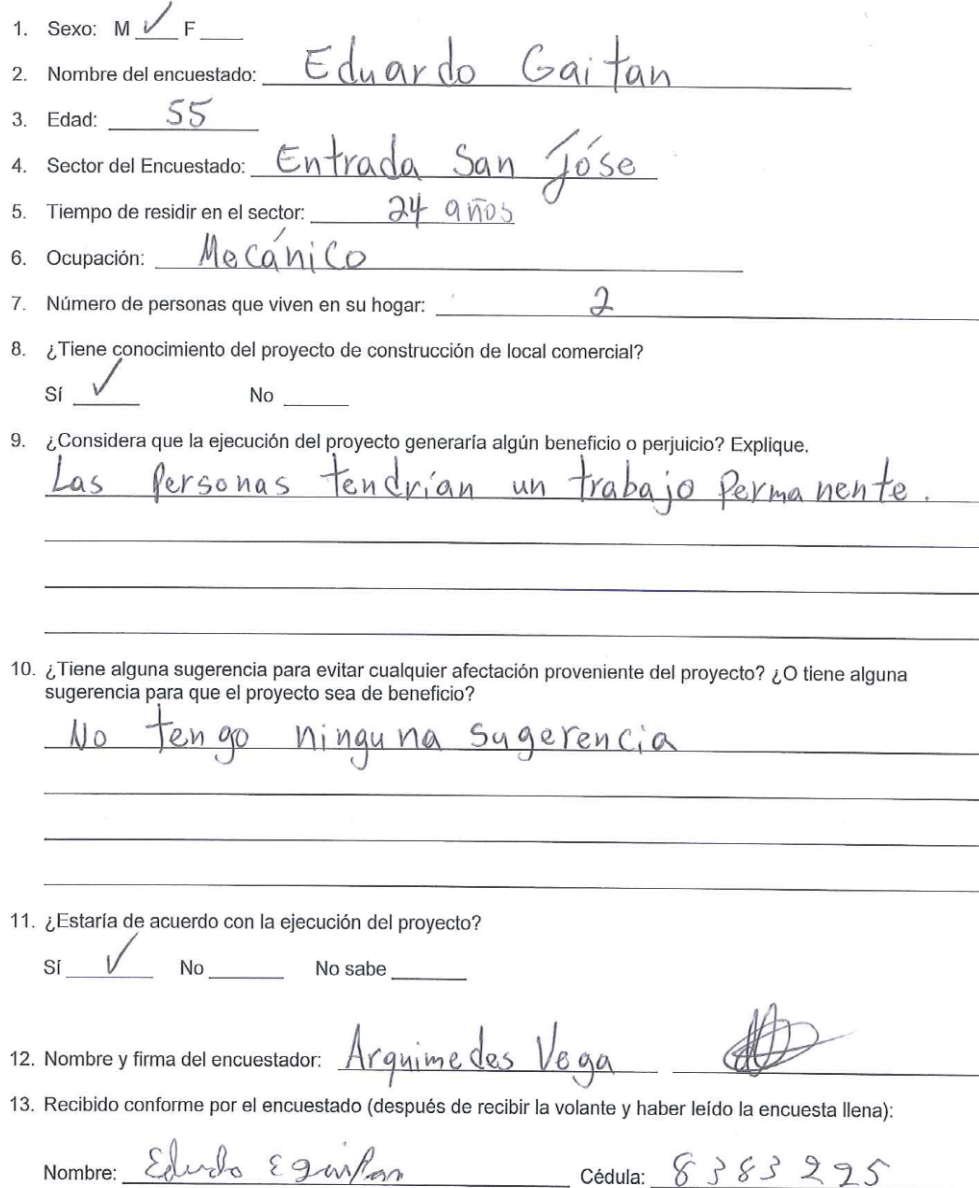 1. Sexo: M ✓ F ____
2. Nombre del encuestado: Eduardo Gaitan
3. Edad: 55
4. Sector del Encuestado: Entrada San Jóse
5. Tiempo de residir en el sector: 24 años
6. Ocupación: Mecánico
7. Número de personas que viven en su hogar: 2
8. ¿Tiene conocimiento del proyecto de construcción de local comercial?
Sí ✓ No ____
9. ¿Considera que la ejecución del proyecto generaría algún beneficio o perjuicio? Explique.
Las Personas tendrían un trabajo Permanente.
10. ¿Tiene alguna sugerencia para evitar cualquier afectación proveniente del proyecto? ¿O tiene alguna
sugerencia para que el proyecto sea de beneficio?
No tengo ninguna sugerencia
11. ¿Estaría de acuerdo con la ejecución del proyecto?
Sí ✓ No ____ No sabe ____
12. Nombre y firma del encuestador: Arquimedes Vega
13. Recibido conforme por el encuestado (después de recibir la volante y haber leído la encuesta llena):
Nombre: Cédula: 8383225